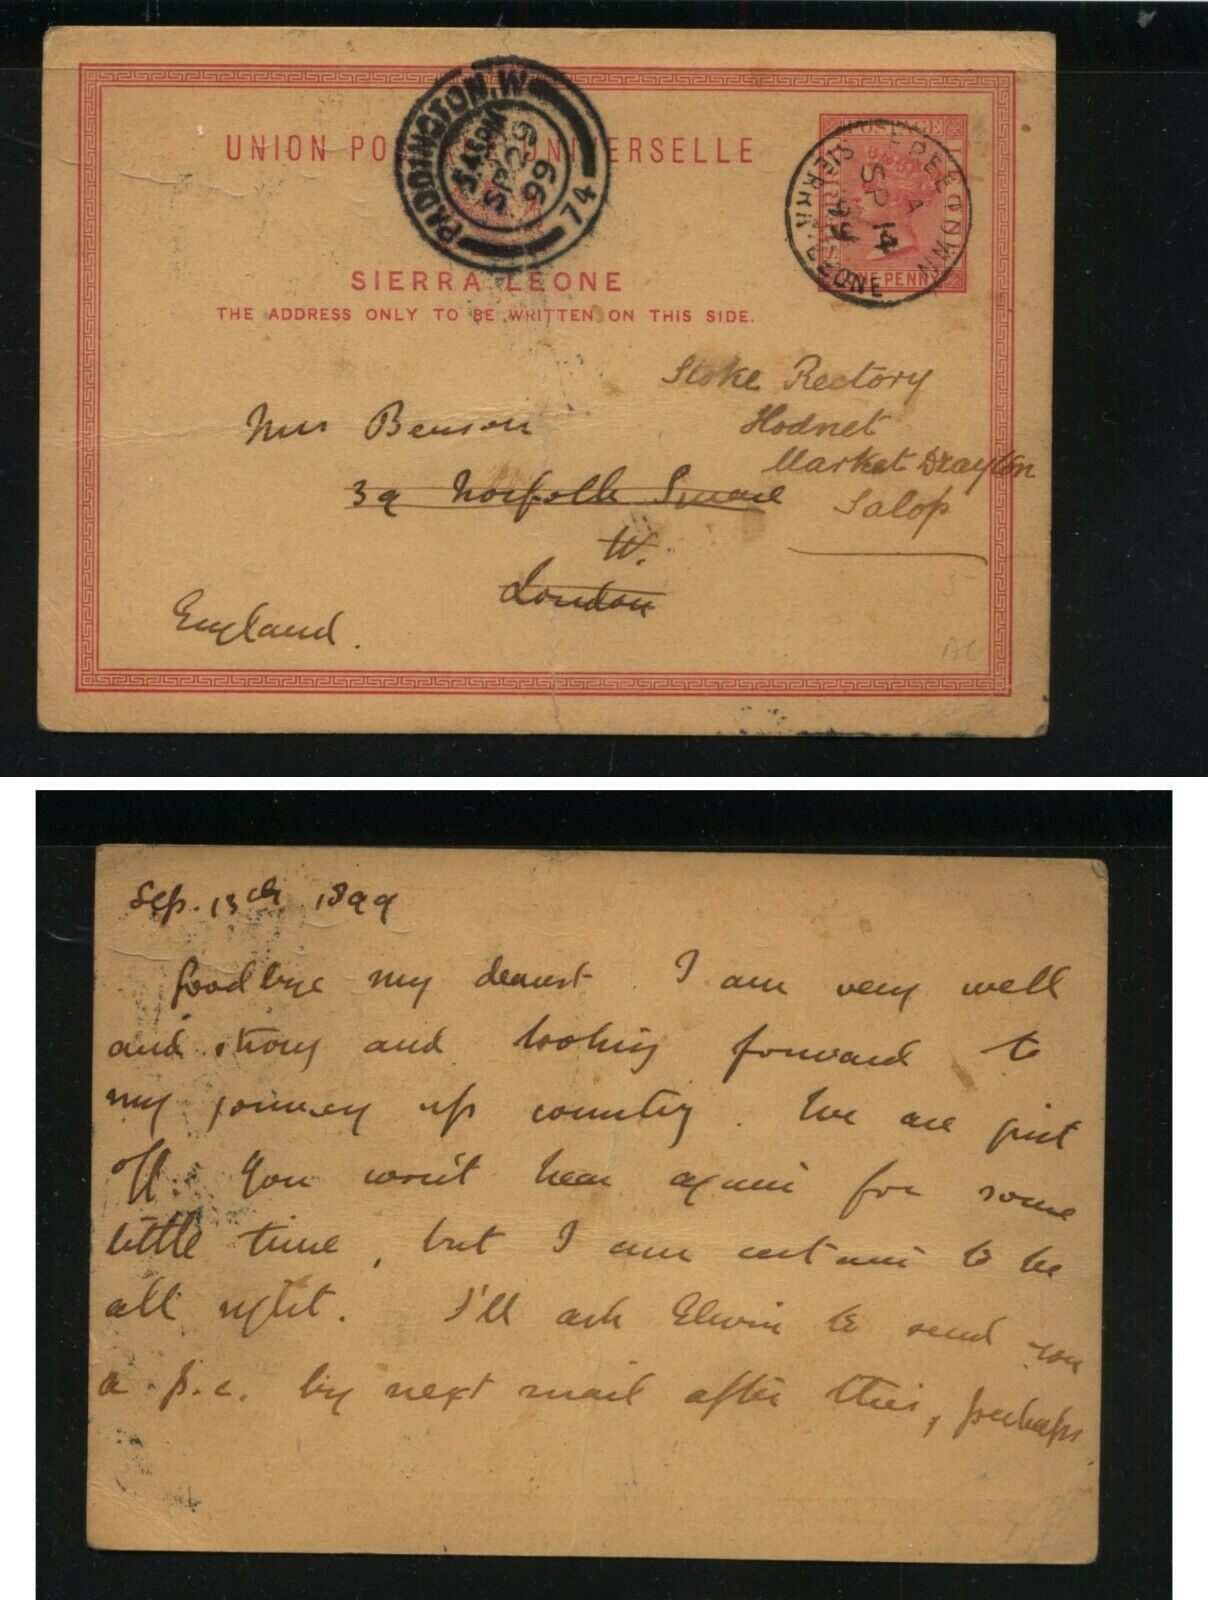 UNION POSTALE UNIVERSELLE
PADDINGTON. W
5.45 PM
SP 29
99
74
POSTAGE
SIERRA LEONE
ONE PENNY
FREETOWN
A
SP 14
99
SIERRA LEONE
SIERRA LEONE
THE ADDRESS ONLY TO BE WRITTEN ON THIS SIDE.
Mrs Benson
39 Norfolk Square
W.
London
England.
Stoke Rectory
Hodnet
Market Drayton
Salop
Sep. 13th 1899
Goodbye my dearest. I am very well
and strong and looking forward to
my journey up country. We are just
off. You won't hear again for some
little time, but I am certain to be
all right. I'll ask Elwin to send you
a p.c. by next mail after this, perhaps